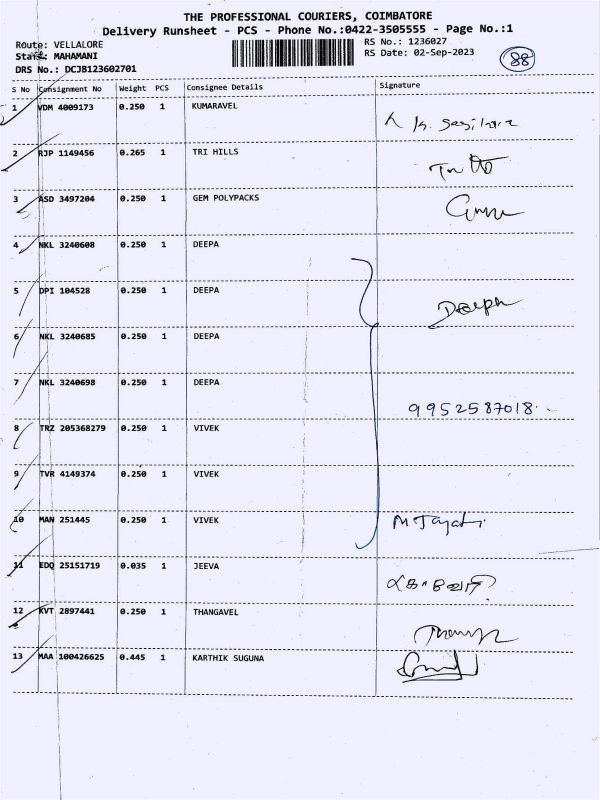 THE PROFESSIONAL COURIERS, COIMBATORE
Delivery Runsheet - PCS - Phone No.:0422-3505555 - Page No.:1
Route: VELLALORE RS No.: 1236027
Staff: MAHAMANI RS Date: 02-Sep-2023 88
DRS No.: DCJB123602701
S No Consignment No Weight PCS Consignee Details Signature
1 VDM 4009173 0.250 1 KUMARAVEL
2 RJP 1149456 0.265 1 TRI HILLS
3 ASD 3497204 0.250 1 GEM POLYPACKS
4 NKL 3240608 0.250 1 DEEPA
5 DPI 104528 0.250 1 DEEPA Deepa
6 NKL 3240685 0.250 1 DEEPA
7 NKL 3240698 0.250 1 DEEPA 9952587018
8 TRZ 205368279 0.250 1 VIVEK
9 TVR 4149374 0.250 1 VIVEK
10 MAN 251445 0.250 1 VIVEK
11 EDQ 25151719 0.035 1 JEEVA
12 KVT 2897441 0.250 1 THANGAVEL
13 MAA 100426625 0.445 1 KARTHIK SUGUNA